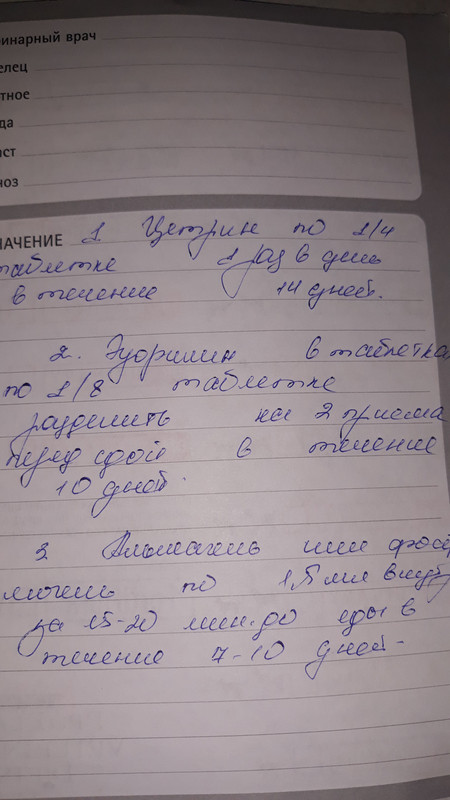 инарный врач
елец
тное
да
аст
ноз
НАЧЕНИЕ 1 Цетрин по 1/4
таблетке 1 раз в день
в течение 14 дней.
2. Эуфиллин в таблетка
по 1/8 таблетке
разделить на 2 приема
перед едой в течение
10 дней.
3. Альмагель или фосф
люгель по 1,5 мл внутр
за 15-20 мин. до еды в
течение 7-10 дней.